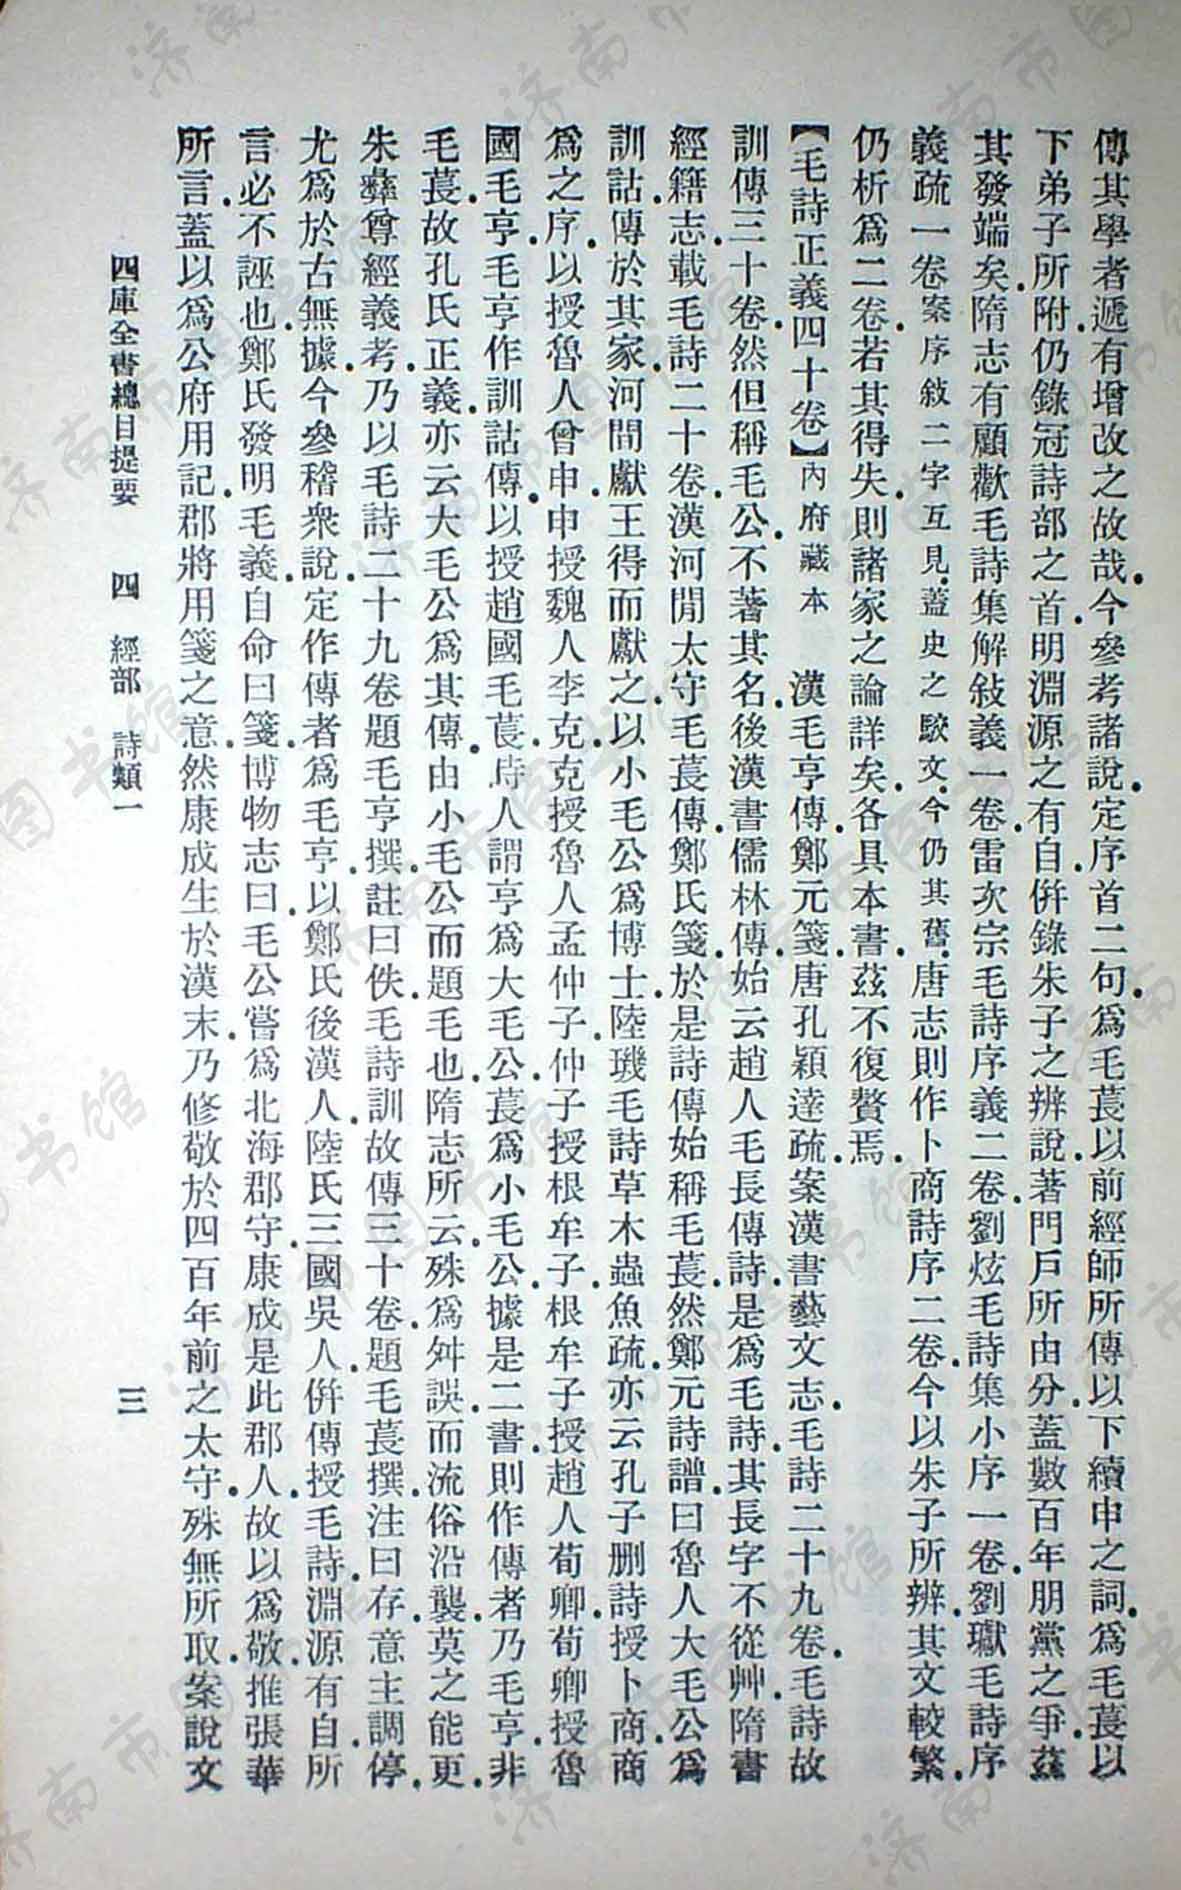 傳其學者遞有增改之故哉.今參考諸說.定序首二句.爲毛萇以前經師所傳以下續申之詞.爲毛萇以
下弟子所附.仍錄冠詩部之首.明淵源之有自.併錄朱子之辨說.著門戶所由分.蓋數百年朋黨之爭.茲
其發端矣.隋志有顧歡毛詩集解敍義一卷.雷次宗毛詩序義二卷.劉炫毛詩集小序一卷.劉瓛毛詩序
義疏一卷.案序敍二字互見.蓋史之駮文.今仍其舊.唐志則作卜商詩序二卷.今以朱子所辨.其文較繁.
仍析爲二卷.若其得失.則諸家之論詳矣.各具本書.茲不復贅焉.
【毛詩正義四十卷】內府藏本 漢毛亨傳.鄭元箋.唐孔穎達疏.案漢書藝文志.毛詩二十九卷.毛詩故
訓傳三十卷.然但稱毛公.不著其名.後漢書儒林傳.始云趙人毛長傳詩.是爲毛詩.其長字不從艸.隋書
經籍志.載毛詩二十卷.漢河閒太守毛萇傳.鄭氏箋.於是詩傳始稱毛萇.然鄭元詩譜曰魯人大毛公爲
訓詁.傳於其家.河間獻王得而獻之.以小毛公爲博士.陸璣毛詩草木蟲魚疏.亦云孔子刪詩.授卜商.商
爲之序.以授魯人曾申.申授魏人李克.克授魯人孟仲子.仲子授根牟子.根牟子授趙人荀卿.荀卿授魯
國毛亨.毛亨作訓詁傳.以授趙國毛萇.時人謂亨爲大毛公.萇爲小毛公.據是二書.則作傳者乃毛亨.非
毛萇.故孔氏正義.亦云大毛公爲其傳.由小毛公而題毛也.隋志所云.殊爲舛誤.而流俗沿襲.莫之能更.
朱彝尊經義考.乃以毛詩二十九卷題毛亨撰.註曰佚.毛詩訓故傳三十卷.題毛萇撰.注曰存.意主調停.
尤爲於古無據.今參稽衆說.定作傳者爲毛亨.以鄭氏後漢人.陸氏三國吳人.併傳授毛詩.淵源有自.所
言必不誣也.鄭氏發明毛義.自命曰箋.博物志曰.毛公嘗爲北海郡守.康成是此郡人.故以爲敬.推張華
所言.蓋以爲公府用記.郡將用箋之意.然康成生於漢末.乃修敬於四百年前之太守.殊無所取.案說文
四庫全書總目提要 四 經部 詩類一 三